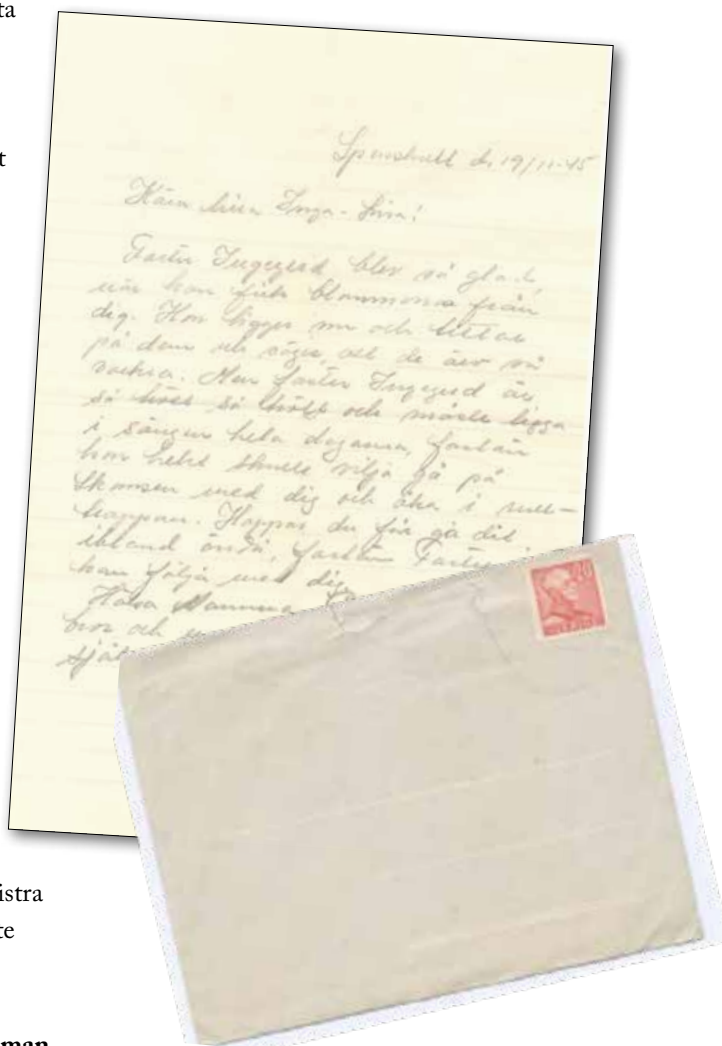 ta
t
Spenshult d. 19/11-45
Kära lilla Inga-Lina!
Faster Ingegerd blev så glad,
när hon fick blommorna från
dig. Hon ligger nu och tittar
på dem och säger, att de äro så
vackra. Men faster Ingegerd är
så trött och måste ligga
i sängen hela dagarna, fastän
hon helst skulle vilja gå på
Skansen med dig och åka i rull-
trappan. Hoppas du får gå dit
ibland ändå, fastän Faster
kan följa med dig
Hälsa Mamma
bror och
själ
20
SVERIGE
istra
te
man